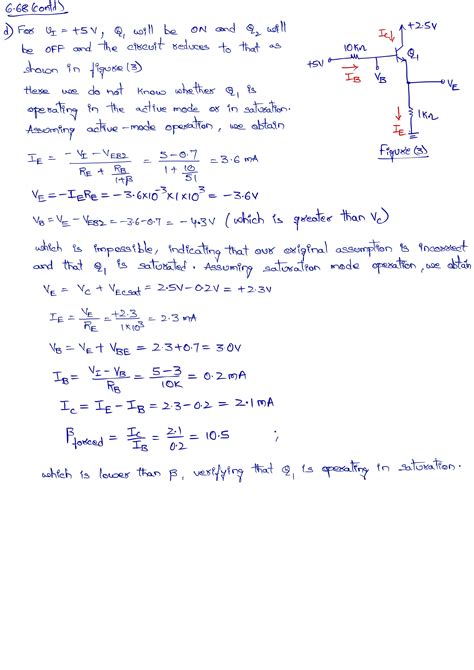 6.68 (contd)
d) For VI = +5V, Q1 will be ON and Q2 will
be OFF and the circuit reduces to that as
shown in figure (3)
Here we do not know whether Q1 is
operating in the active mode or in saturation.
Assuming active-mode operation, we obtain
IE = (-VI - VEB2) / (RE + RB/(1+β)) = (5-0.7) / (1 + 10/51) = 3.6 mA
VE = -IE RE = -3.6×10^-3 × 1×10^3 = -3.6V
VB = VE - VEB2 = -3.6-0.7 = -4.3V (which is greater than Vc)
which is impossible, indicating that our original assumption is incorrect
and that Q1 is saturated. Assuming saturation mode operation, we obtain
VE = VC + VECsat = 2.5V-0.2V = +2.3V
IE = VE/RE = +2.3/(1×10^3) = 2.3 mA
VB = VE + VBE = 2.3+0.7 = 3.0V
IB = (VI - VB)/RB = (5-3)/10K = 0.2 mA
IC = IE - IB = 2.3-0.2 = 2.1 mA
βforced = IC/IB = 2.1/0.2 = 10.5 ;
which is lower than β, verifying that Q1 is operating in saturation.
+2.5V
IC
10KΩ
Q1
+5V
IB
VB
VE
1KΩ
IE
Figure (3)